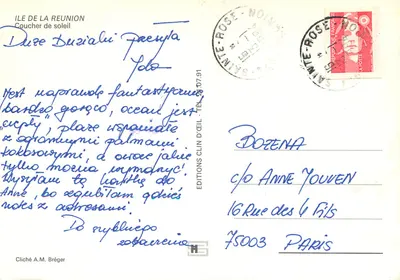 ILE DE LA REUNION
Coucher de soleil
Duże Buziaki przesyła
Jola
Jest naprawdę fantastycznie,
bardzo gorąco, ocean jest
"ciepły", plaże wspaniałe
z ogromnymi palmami
kokosowymi, a owoce jakie
tylko można wymarzyć.
Wysyłam tę kartkę do
Anne, bo zgubiłam gdzieś
notes z adresami.
Do szybkiego
zobaczenia
Cliché A.M. Bréger
EDITIONS CLIN D'ŒIL
SAINTE-ROSE
SAINTE-ROSE
BOZENA
c/o ANNE JOUVEN
16 Rue des 4 Fils
75003 PARIS